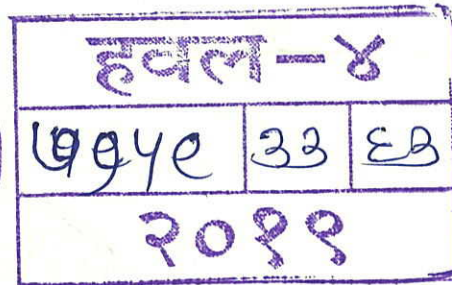 हवल-४
७७५९ ३३ ६३
२०१९